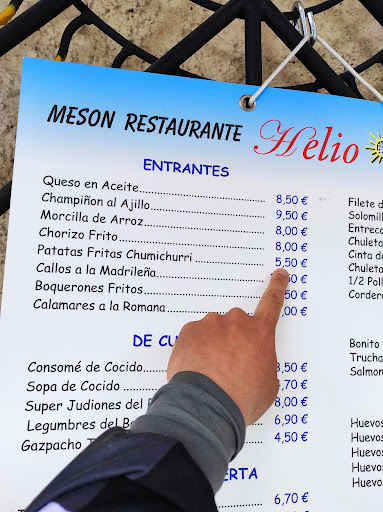 MESON RESTAURANTE Helio
ENTRANTES
Queso en Aceite 8,50 €
Champiñon al Ajillo 9,50 €
Morcilla de Arroz 8,00 €
Chorizo Frito 8,00 €
Patatas Fritas Chumichurri 5,50 €
Callos a la Madrileña ,50 €
Boquerones Fritos ,50 €
Calamares a la Romana ,00 €
DE CU
Consomé de Cocido 3,50 €
Sopa de Cocido ,70 €
Super Judiones del 8,00 €
Legumbres del 6,90 €
Gazpacho 4,50 €
ERTA
6,70 €
Filete d
Solomill
Entreco
Chuleta
Cinta de
Chuleto
1/2 Poll
Cordero
Bonito
Trucha
Salmon
Huevos
Huevos
Huevos
Huevos